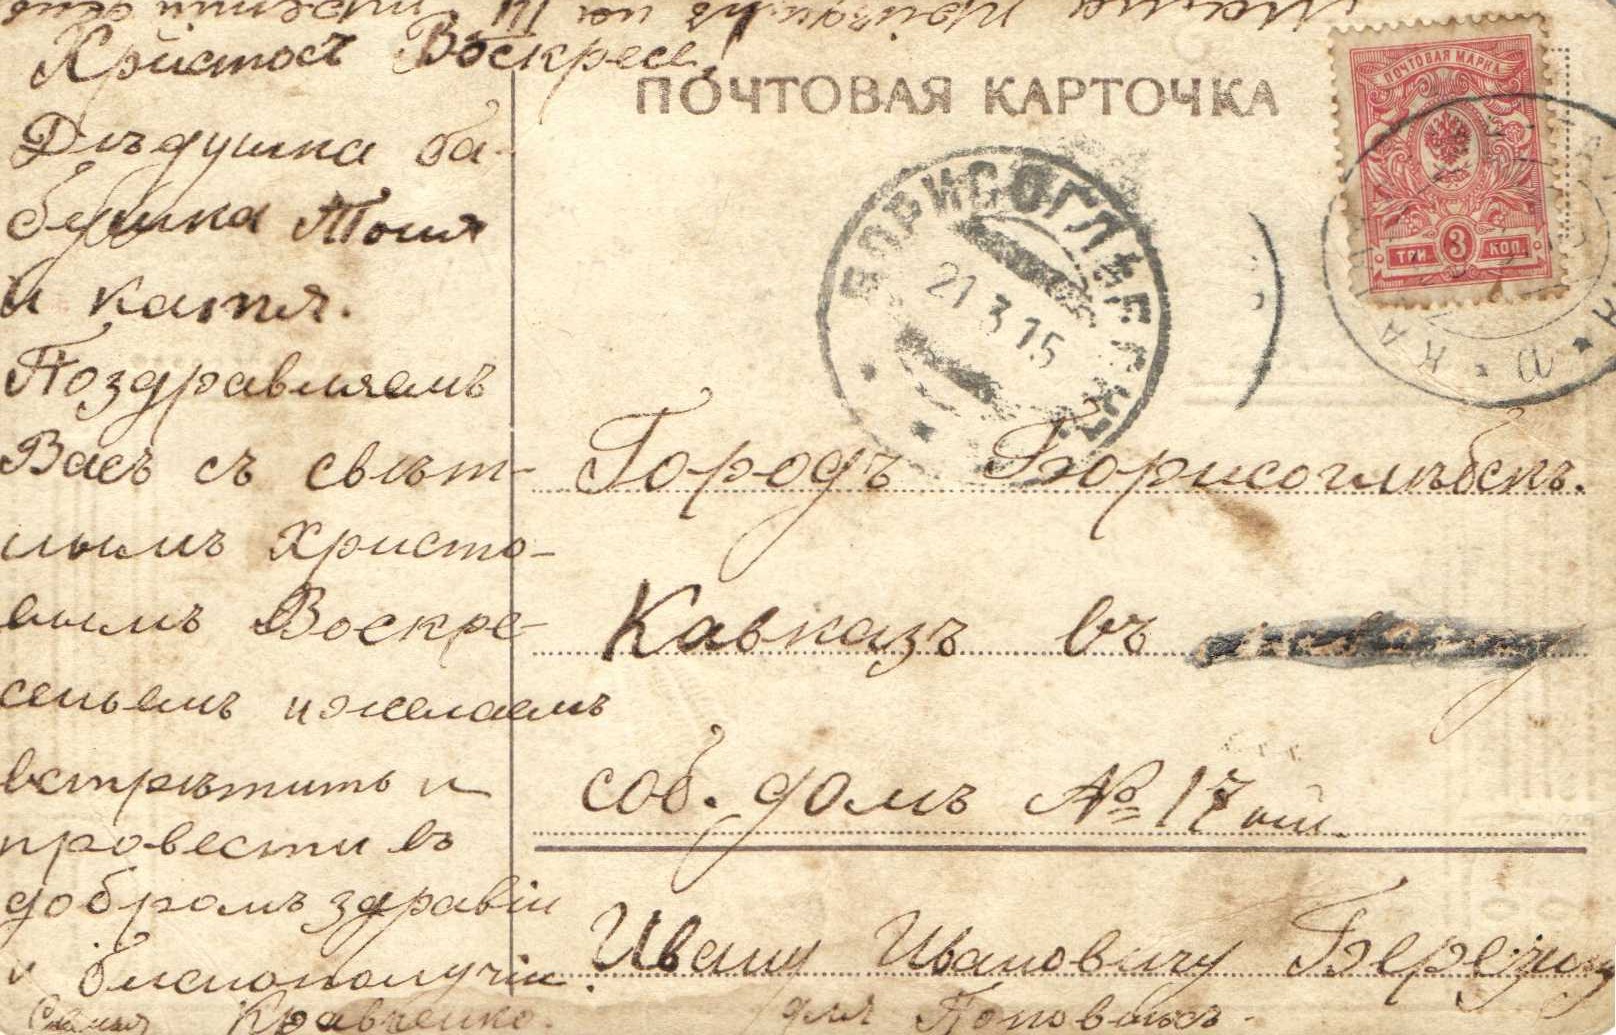 Христосъ Воскресе!
Дѣдушка ба-
бушка Тоня
и катя.
Поздравляемъ
Васъ съ свѣт-
лымъ христо-
вымъ Воскре-
сеньемъ и желаемъ
встрѣтить и
провести въ
добромъ здравіи
и благополучіи.
Семья Кравченко.
ПОЧТОВАЯ КАРТОЧКА
ПОЧТОВАЯ МАРКА
ТРИ 3 КОП.
БОРИСОГЛѢБСКЪ
21 3 15
Городъ Борисоглѣбскъ.
Кавказъ въ
соб. домъ № 17ый.
Ивану Ивановичу Березину
для Поповыхъ.